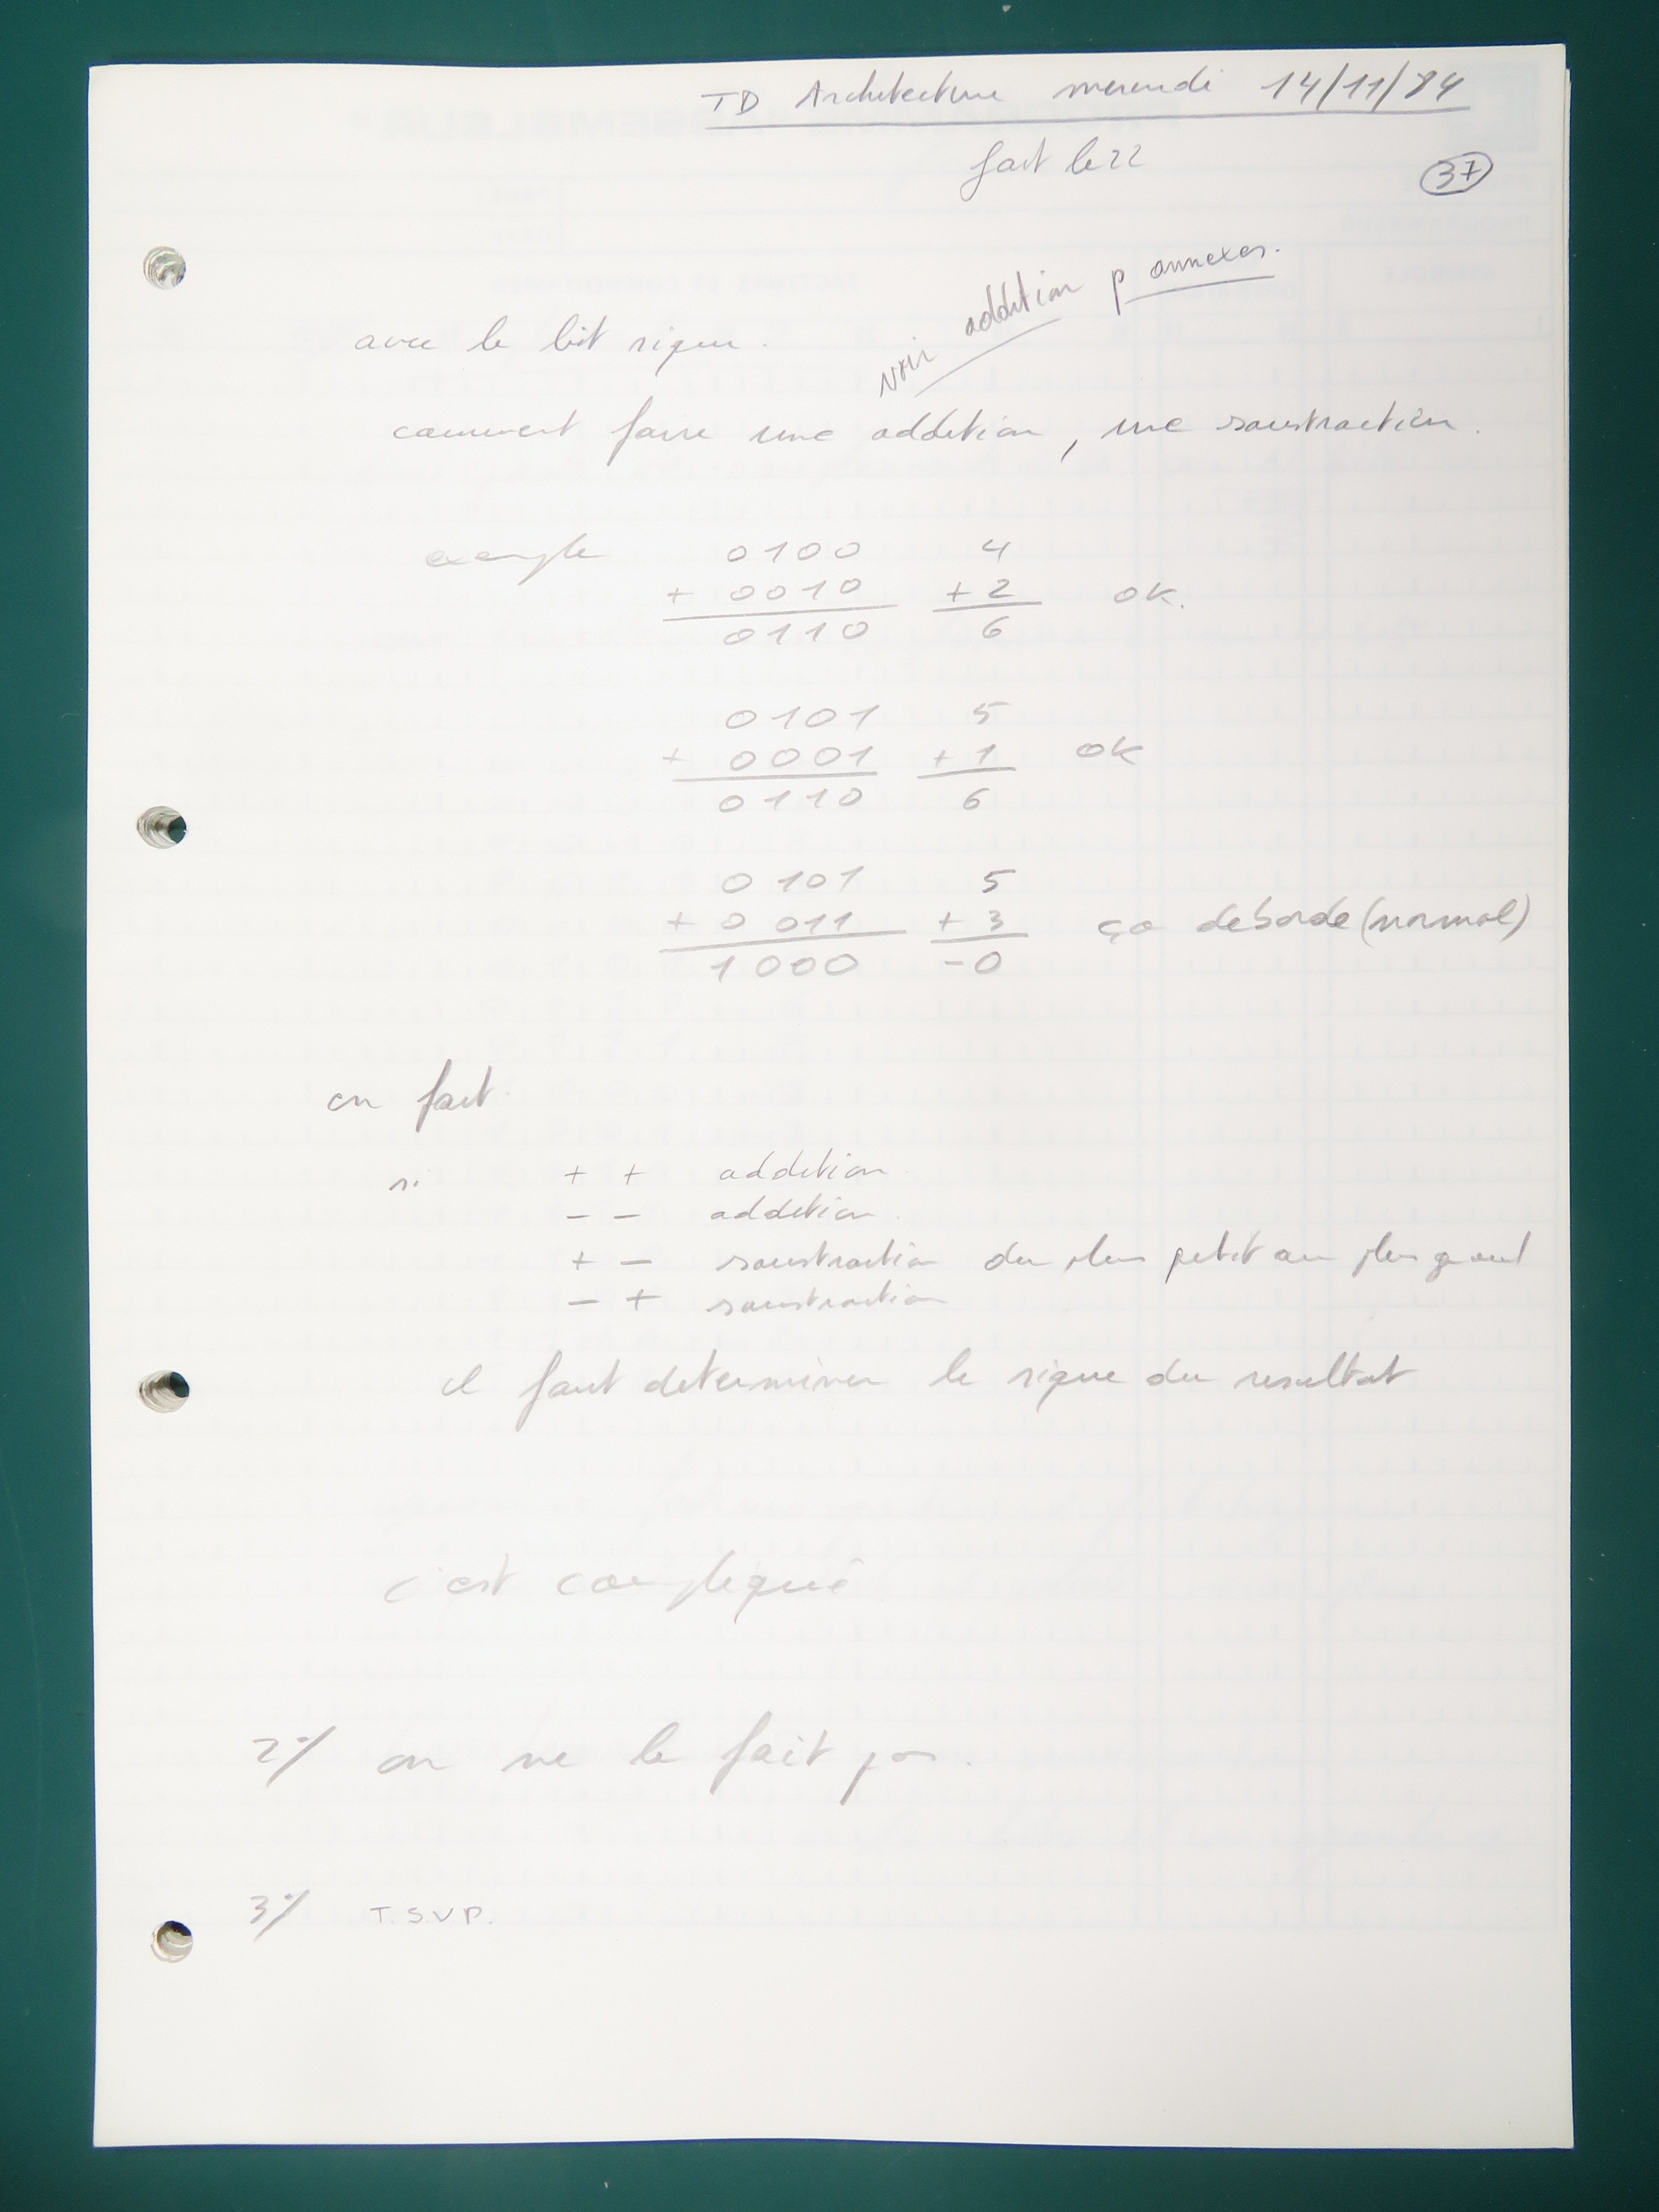 TD Architecture mercredi 14/11/84
fait le 22
37
voir addition p annexes.
avec le bit signe.
comment faire une addition, une soustraction.
exemple 0100 4
+ 0010 + 2 OK.
0110 6
0101 5
+ 0001 + 1 OK
0110 6
0101 5
+ 0 011 + 3 ça deborde (normal)
1000 -0
on fait
si + + addition
- - addition.
+ - soustraction du plus petit au plus grand
- + soustraction
il faut determiner le signe du resultat
c'est compliqué
2°/ on ne le fait pas.
3°/ T.S.V.P.